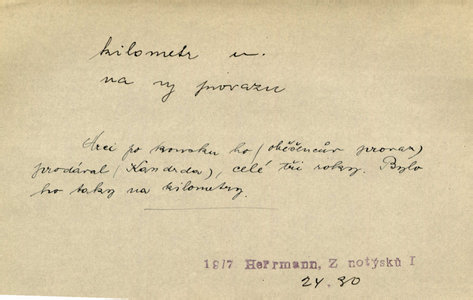 kilometr u.
na ry provazu
Arci po kousku ho (oběšencův provaz)
prodával (Kandrda), celé tři roky. Bylo
ho taky na kilometry.
1917 Herrmann, Z notýsků I
24.80